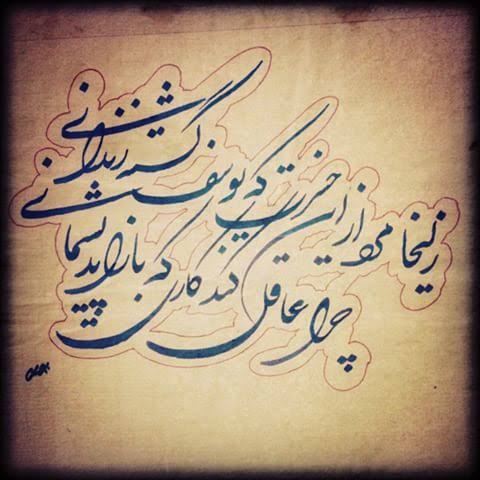 زلیخا مرد از این حسرت که یوسف گشته زندانی
چرا عاقل کند کاری که باز آید پشیمانی